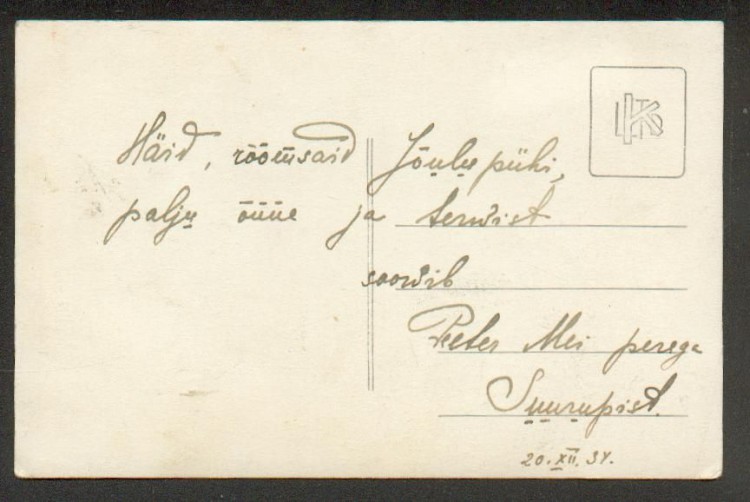 Häid, rõõmsaid Jõulu pühi,
palju õnne ja terwist
soowib
Peeter Mei perega
Suurupist.
20. XII. 34.